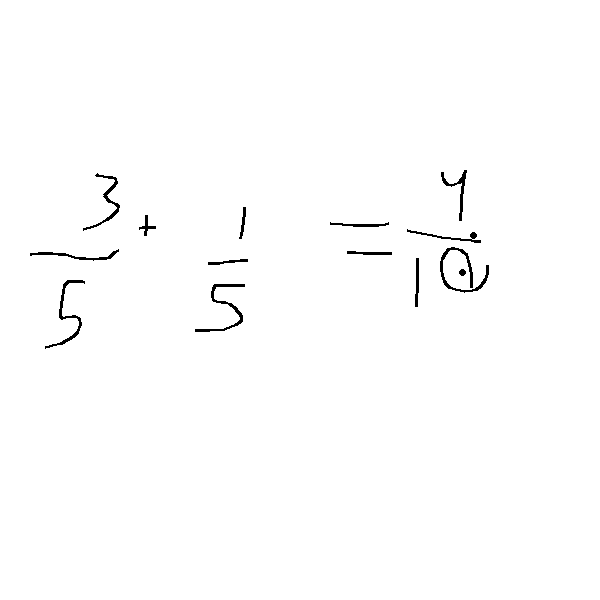 3/5 + 1/5 = 4/10